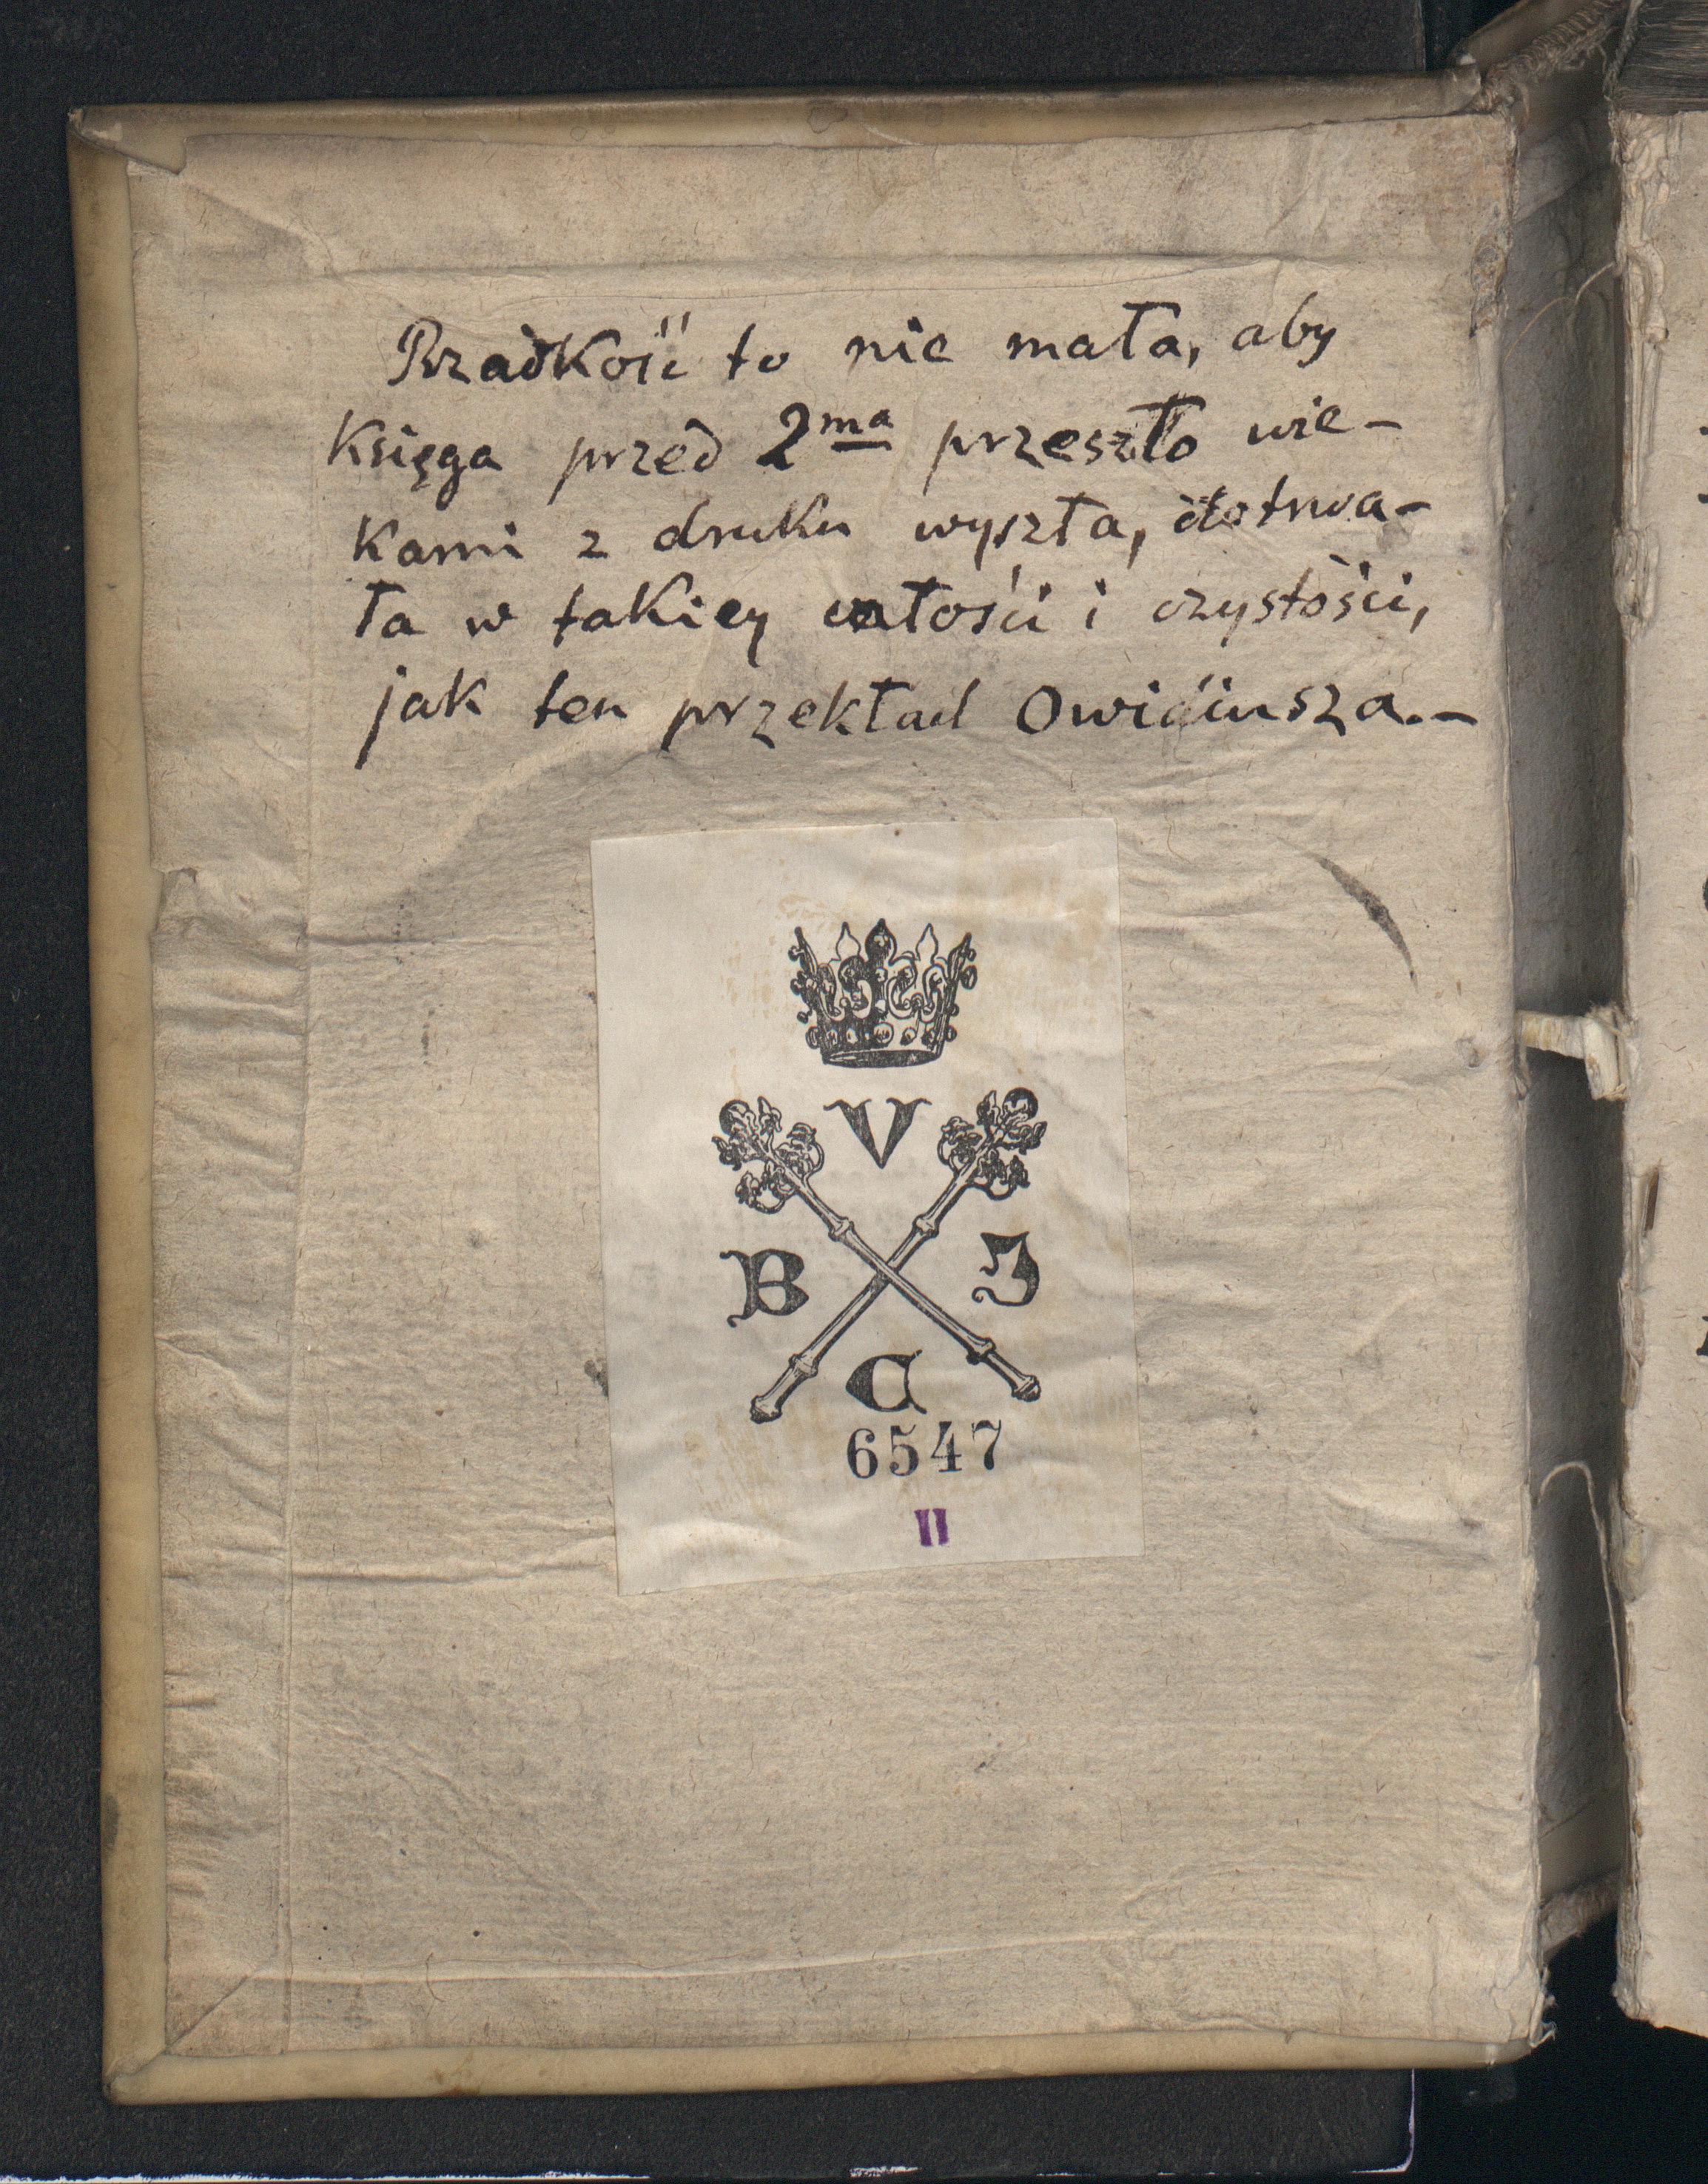 Rzadkość to nie mała, aby
Księga przed 2ma przeszło wie-
kami z druku wyszła, dotrwa-
ła w takiey całości i czystości,
jak ten przekład Owidiusza.-
V
B J
C
6547
II